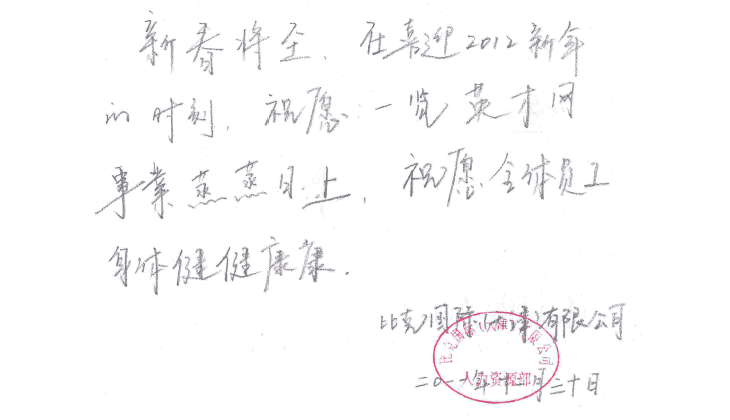 新春将至，在喜迎2012新年
的时刻，祝愿一览英才网
事業蒸蒸日上，祝愿全体员工
身体健健康康．
比克国际（天津）有限公司
比克国际（天津）有限公司
人力资源部
二〇一一年十二月二十日